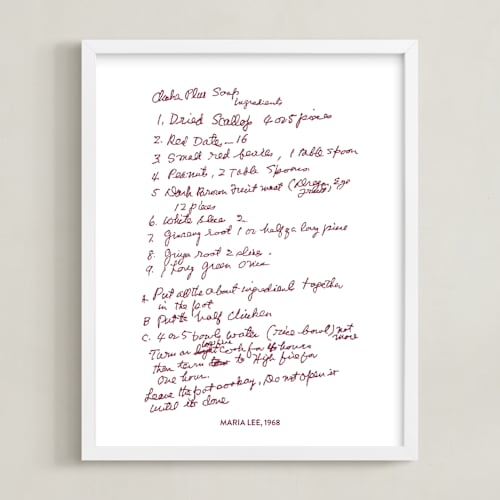 Plus Soup
Ingredients
1. Dried Scallops 4 or 5 pieces
2. Red Dates _ 16
3. Small red beans, 1 Table spoon
4. Peanuts, 2 Table Spoons
5 Dark Brown Fruit meat (Dragon Eye
12 pieces
6. White 2
7. Ginseng root 1 or half of a long pine
8. root 2 slice.
9. 1 Long green Onion
A Put all the about ingredient together
in the pot
B Put half chicken
C. 4 or 5 bowls water (rice bowl) not more
Turn on low fire Cook for 4 hours
then turn to High fire for
One hour.
Leave the pot , Do not open it
Until it's done
MARIA LEE, 1968